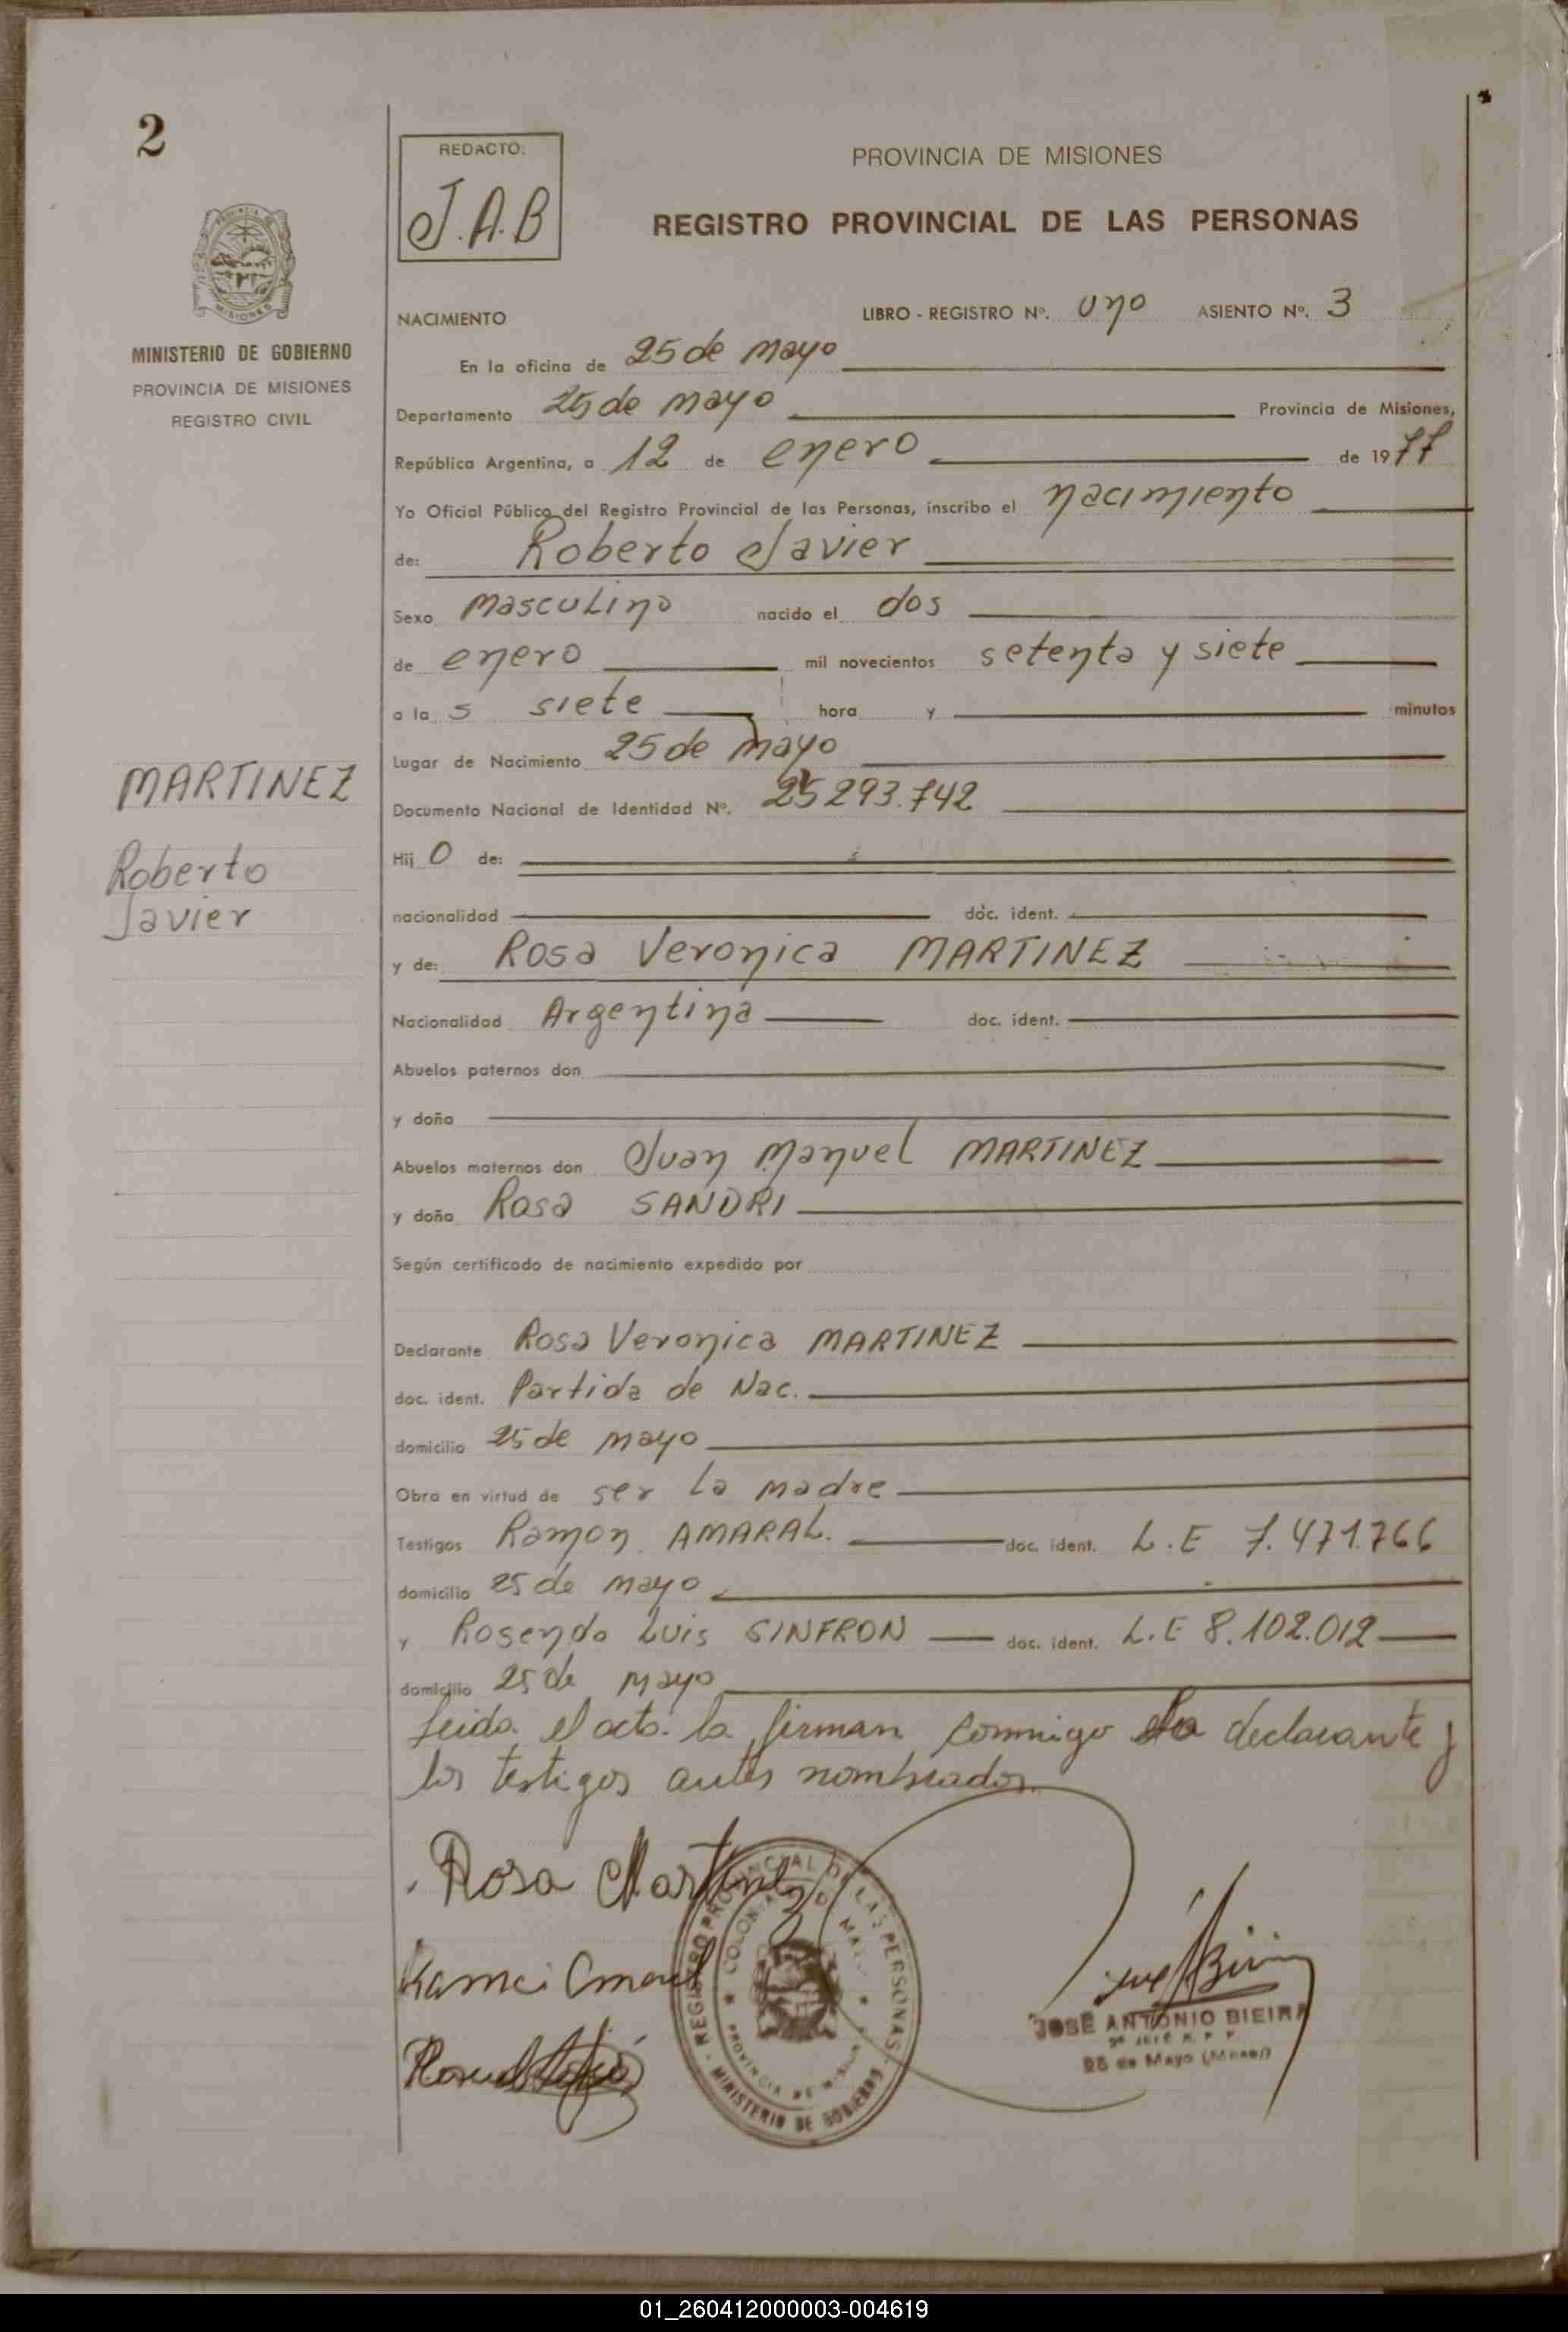 2
REDACTO:
J.A.B
PROVINCIA DE MISIONES
REGISTRO PROVINCIAL DE LAS PERSONAS
MINISTERIO DE GOBIERNO
PROVINCIA DE MISIONES
REGISTRO CIVIL
NACIMIENTO LIBRO - REGISTRO Nº. uno ASIENTO Nº. 3
En la oficina de 25 de mayo
Departamento 25 de mayo Provincia de Misiones,
República Argentina, a 12 de enero de 1977
Yo Oficial Público del Registro Provincial de las Personas, inscribo el nacimiento
de: Roberto Javier
Sexo masculino nacido el dos
de enero mil novecientos setenta y siete
a la s siete hora y minutos
Lugar de Nacimiento 25 de mayo
MARTINEZ
Roberto
Javier
Documento Nacional de Identidad Nº. 25293.742
Hij o de:
nacionalidad doc. ident.
y de: Rosa Veronica MARTINEZ
Nacionalidad Argentina doc. ident.
Abuelos paternos don
y doña
Abuelos maternos don Juan Manuel MARTINEZ
y doña Rosa SANDRI
Según certificado de nacimiento expedido por
Declarante Rosa Veronica MARTINEZ
doc. ident. Partida de Nac.
domicilio 25 de mayo
Obra en virtud de ser la madre
Testigos Ramon AMARAL. doc. ident. L.E 7.471.766
domicilio 25 de mayo
y Rosendo Luis SINFRON doc. ident. L.E 8.102.012
domicilio 25 de mayo
Leida el acta la firman conmigo la declarante y
los testigos antes nombrados
Rosa Martinez
REGISTRO PROVINCIAL DE LAS PERSONAS
MINISTERIO DE GOBIERNO
COLONIA 25 DE MAYO
PROVINCIA DE MISIONES
JOSE ANTONIO BIEIRA
25 de Mayo (Mnes)
01_260412000003-004619